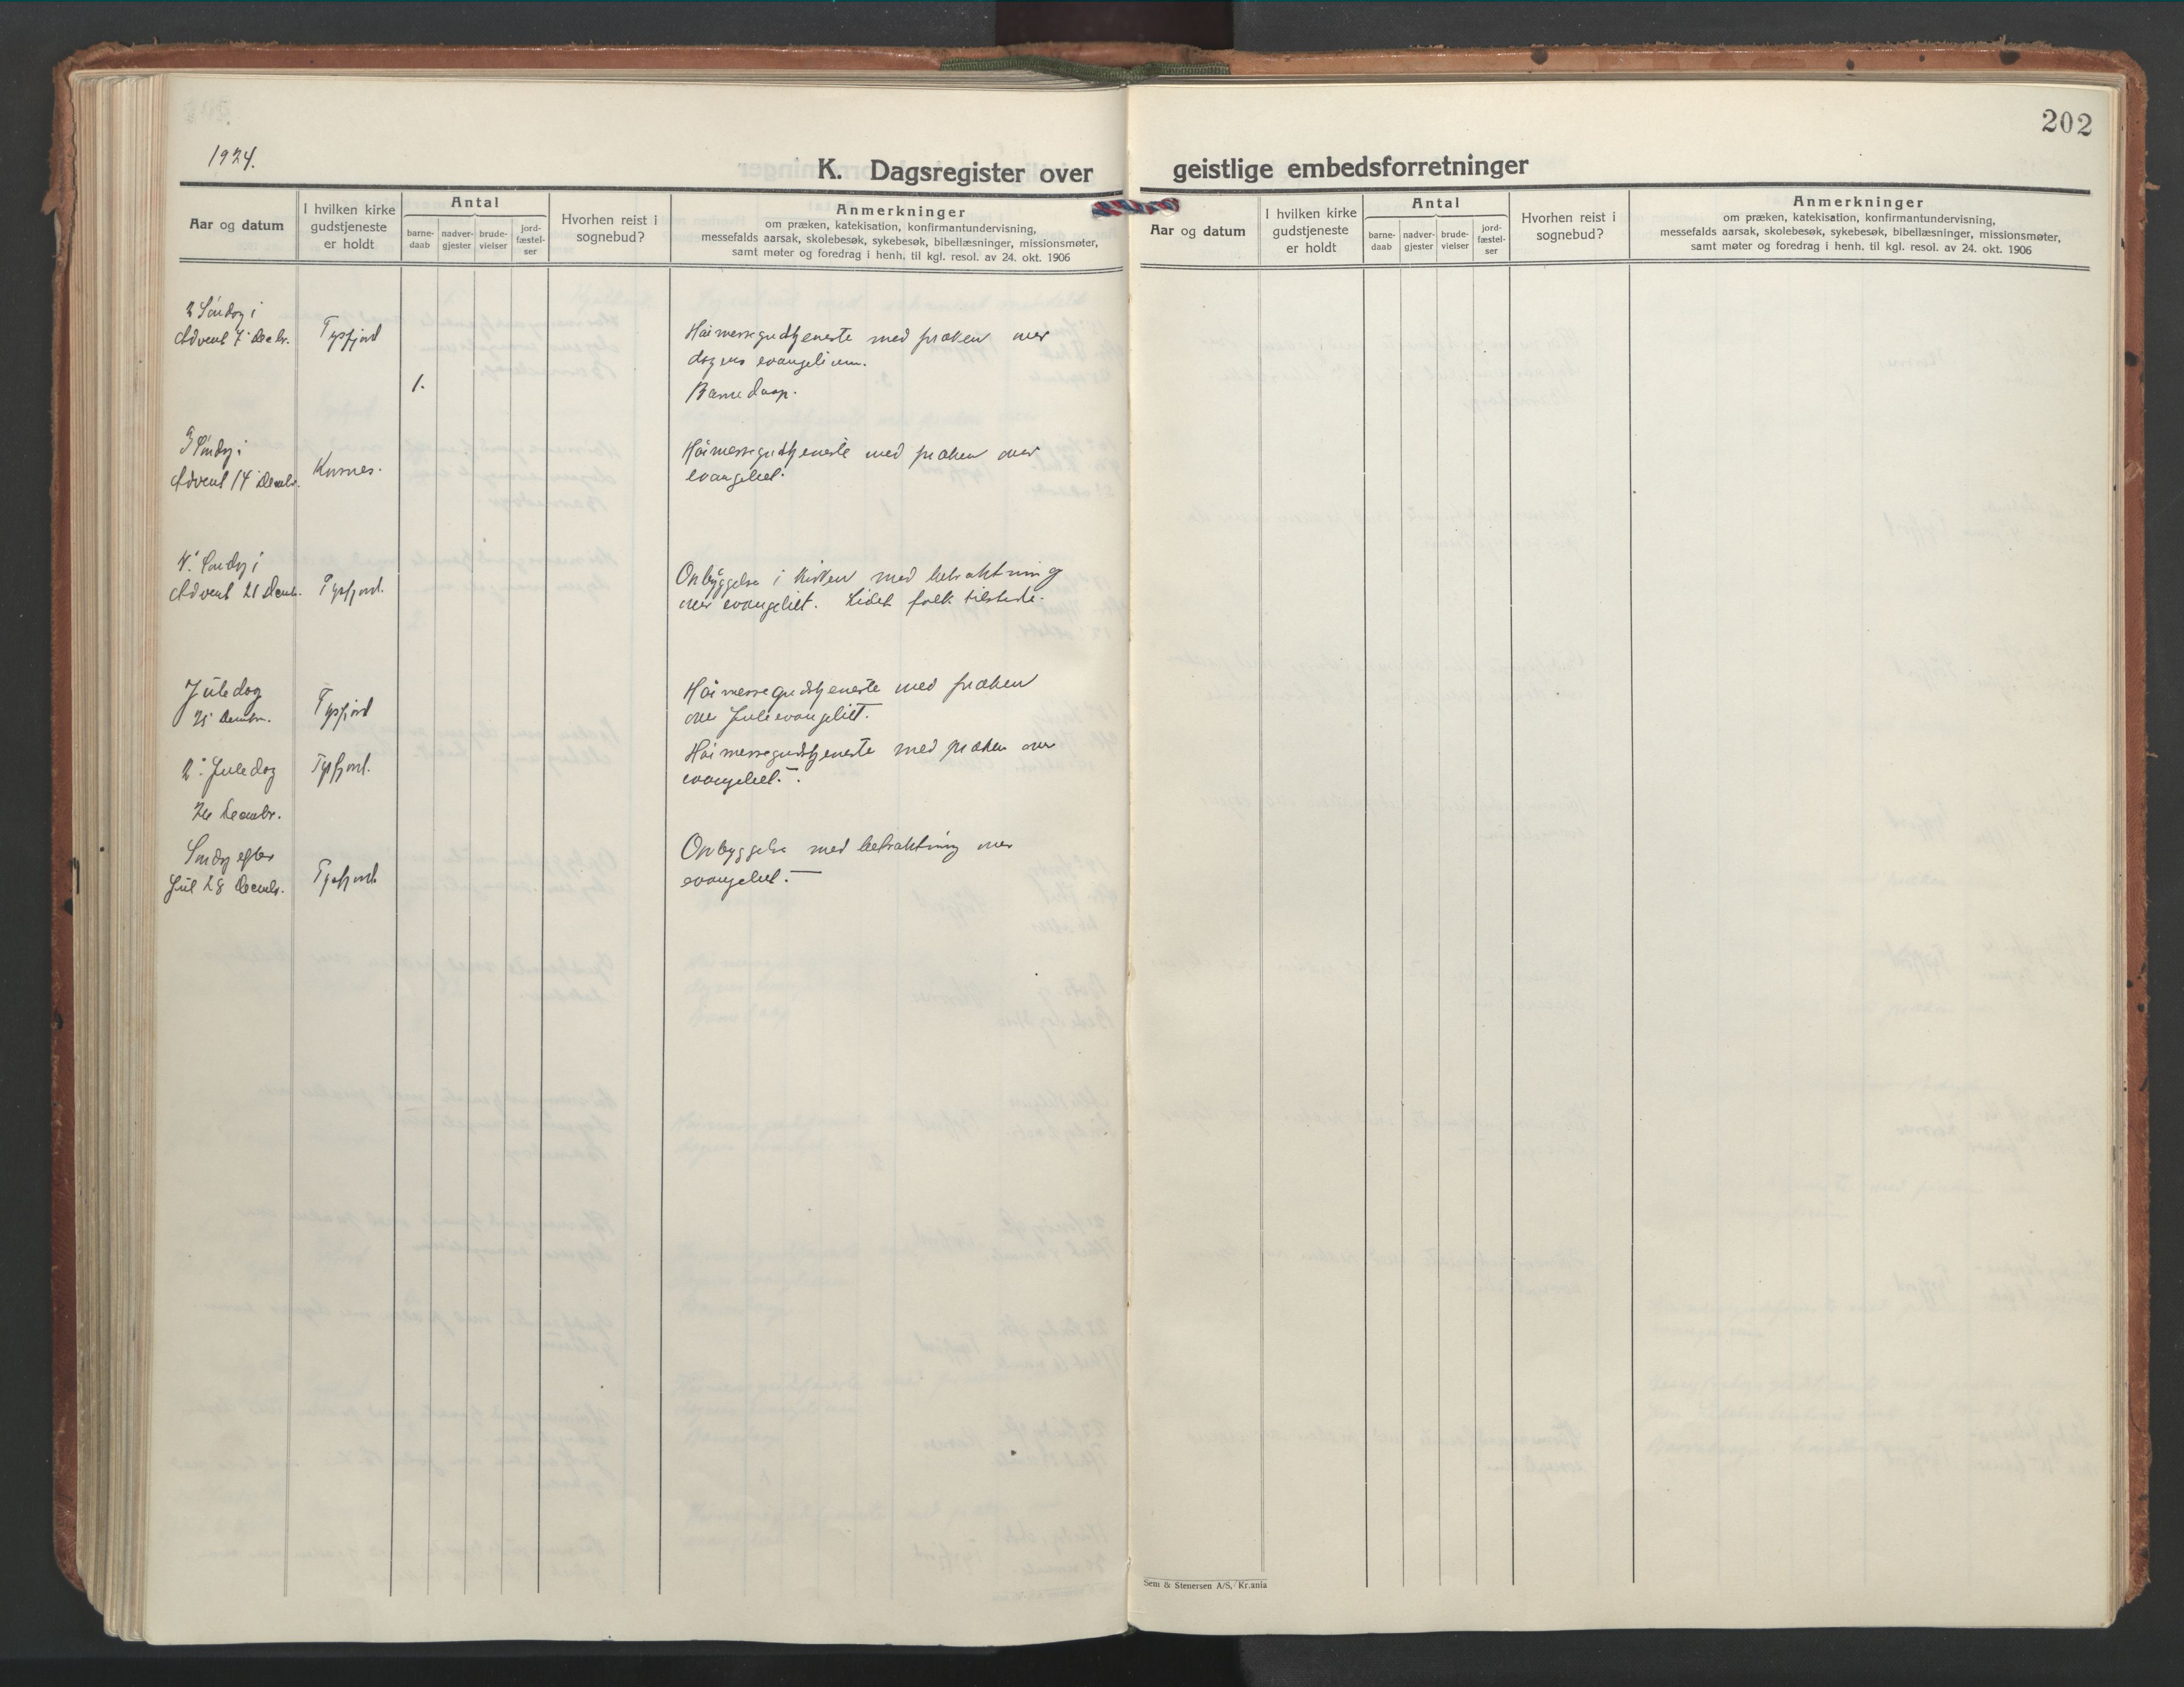 1924.
202
K. Dagsregister over geistlige embedsforretninger
Aar og datum
I hvilken kirke
gudstjeneste
er holdt
Antal
barne-
daab
nadver-
gjester
brude-
vielser
jord-
fæstel-
ser
Hvorhen reist i
sognebud?
Anmerkninger
om præken, katekisation, konfirmantundervisning,
messefalds aarsak, skolebesøk, sykebesøk, bibellæsninger, missionsmøter,
samt møter og foredrag i henh. til kgl. resol. av 24. okt. 1906
2 Søndag i
Advent 7' Decbr.
Tysfjord
Høimessegudstjeneste med præken over
dagens evangelium.
1.
Barnedaap.
3 Søndag i
Advent 14' Decembr.
Korsnes.
Høimessegudstjeneste med præken over
evangeliet.
4' Søndag i
Advent 21 Decbr.
Tysfjord.
Opbyggelse i kirken med betraktning
over evangeliet. Lidet folk tilstede.
Juledag
25 Decembr.
Tysfjord
Høimessegudstjeneste med præken
over Juleevangeliet.
2' Juledag
26 Decembr.
Tysfjord.
Høimessegudstjeneste med præken over
evangeliet. –.
Søndag efter
Jul 28 Decembr.
Tysfjord
Opbyggelse med betraktning over
evangeliet. —
Aar og datum
I hvilken kirke
gudstjeneste
er holdt
Antal
barne-
daab
nadver-
gjester
brude-
vielser
jord-
fæstel-
ser
Hvorhen reist i
sognebud?
Anmerkninger
om præken, katekisation, konfirmantundervisning,
messefalds aarsak, skolebesøk, sykebesøk, bibellæsninger, missionsmøter,
samt møter og foredrag i henh. til kgl. resol. av 24. okt. 1906
Sem & Stenersen A/S, Kr.ania